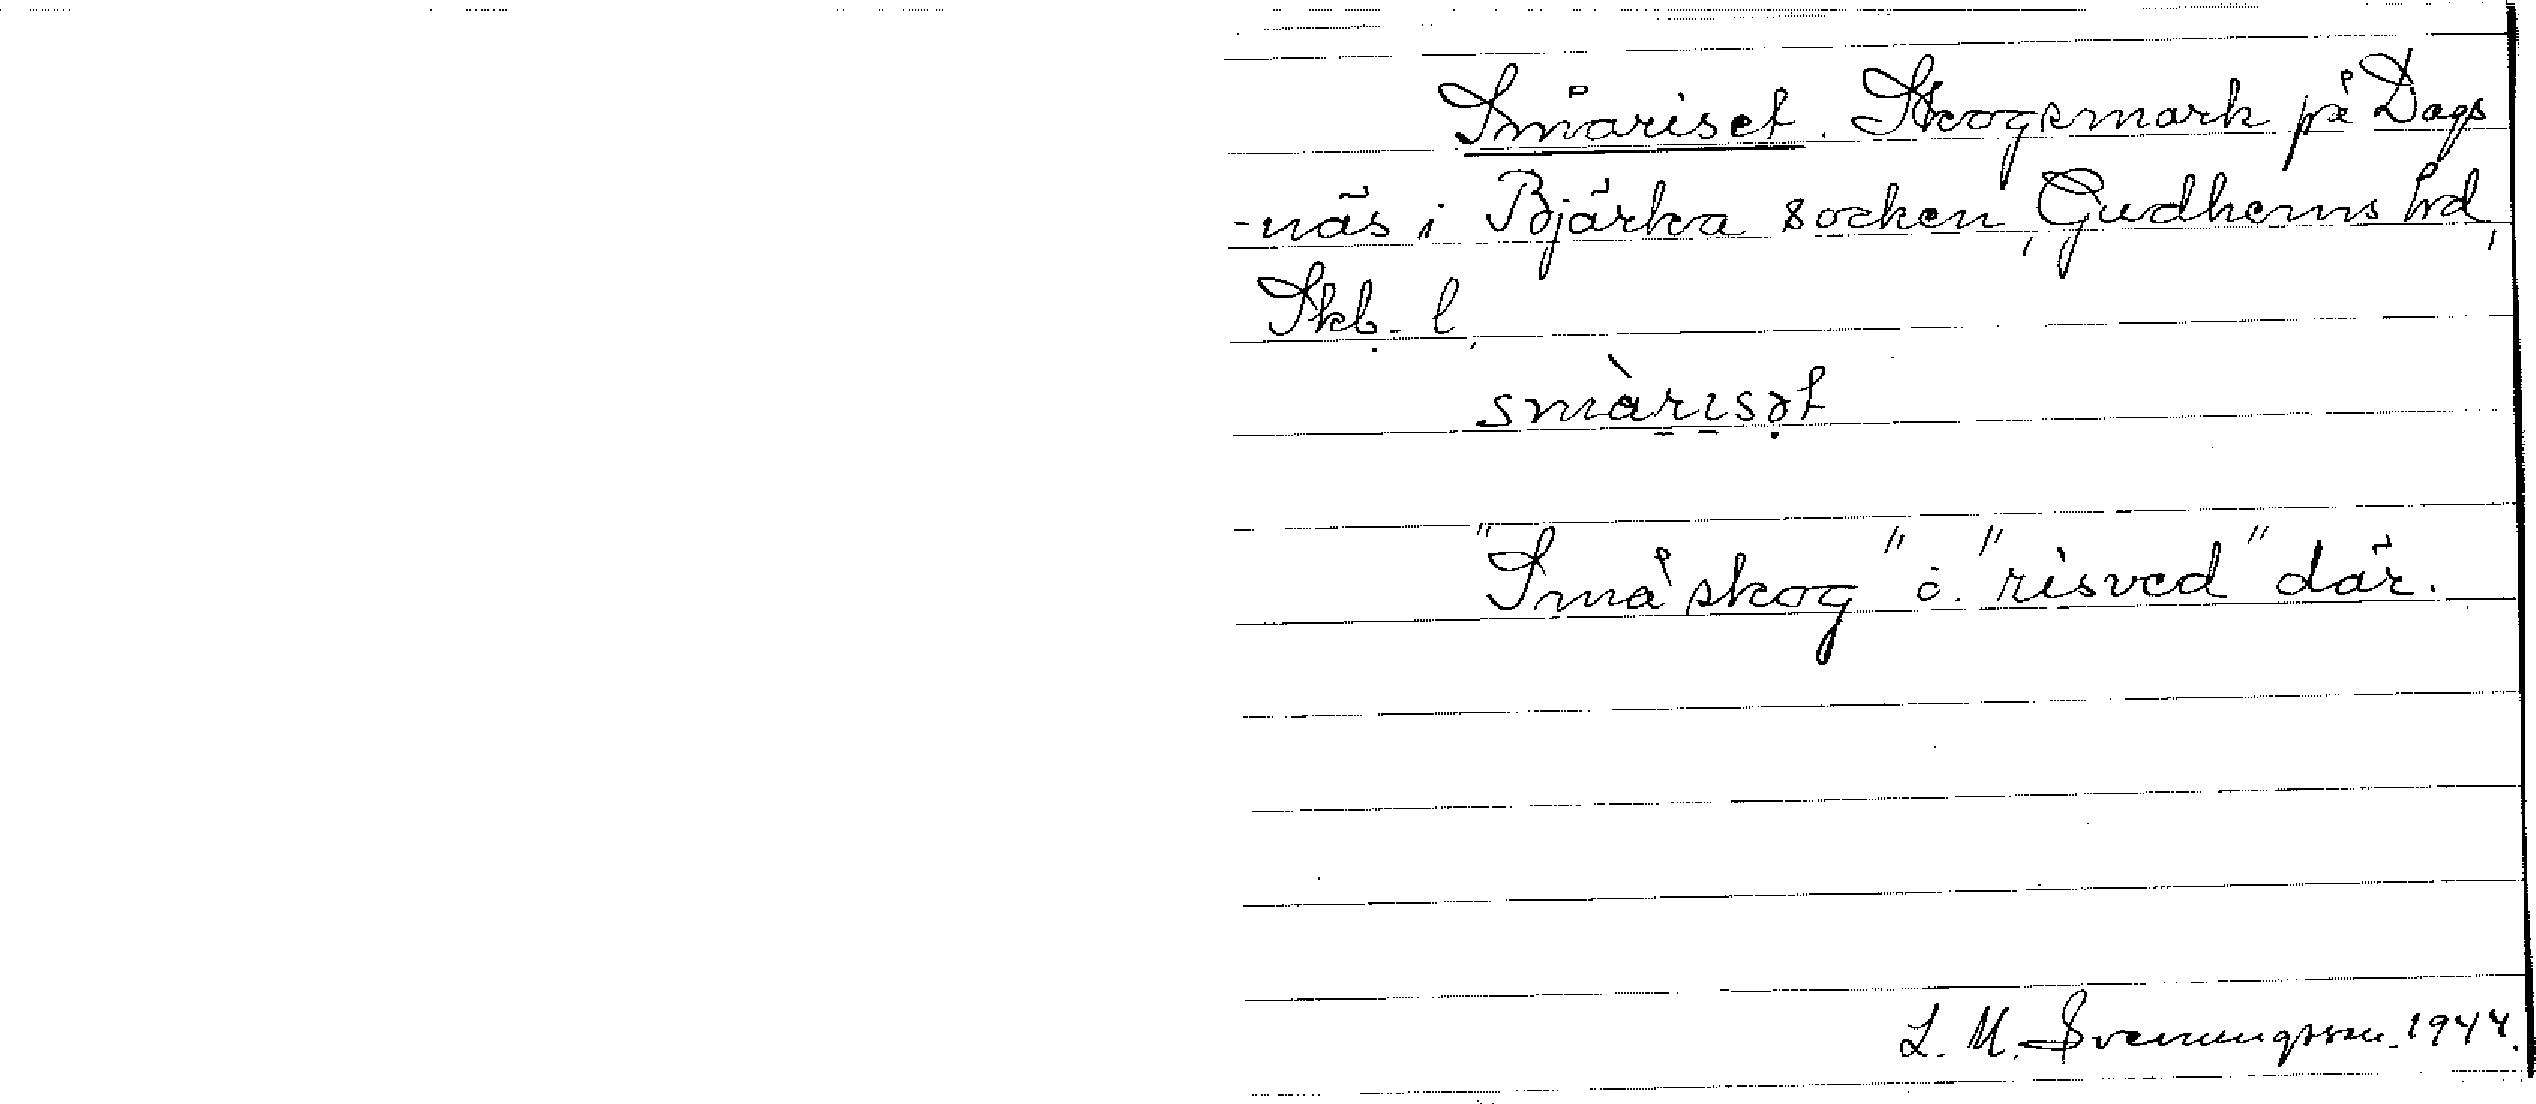 Småriset. Skogsmark på Dags
-näs i Bjärka socken, Gudhems hrd,
Skb. l.
smàrısət
"Småskog" o. "risved" där.
L. M. Svenungsson. 1944.